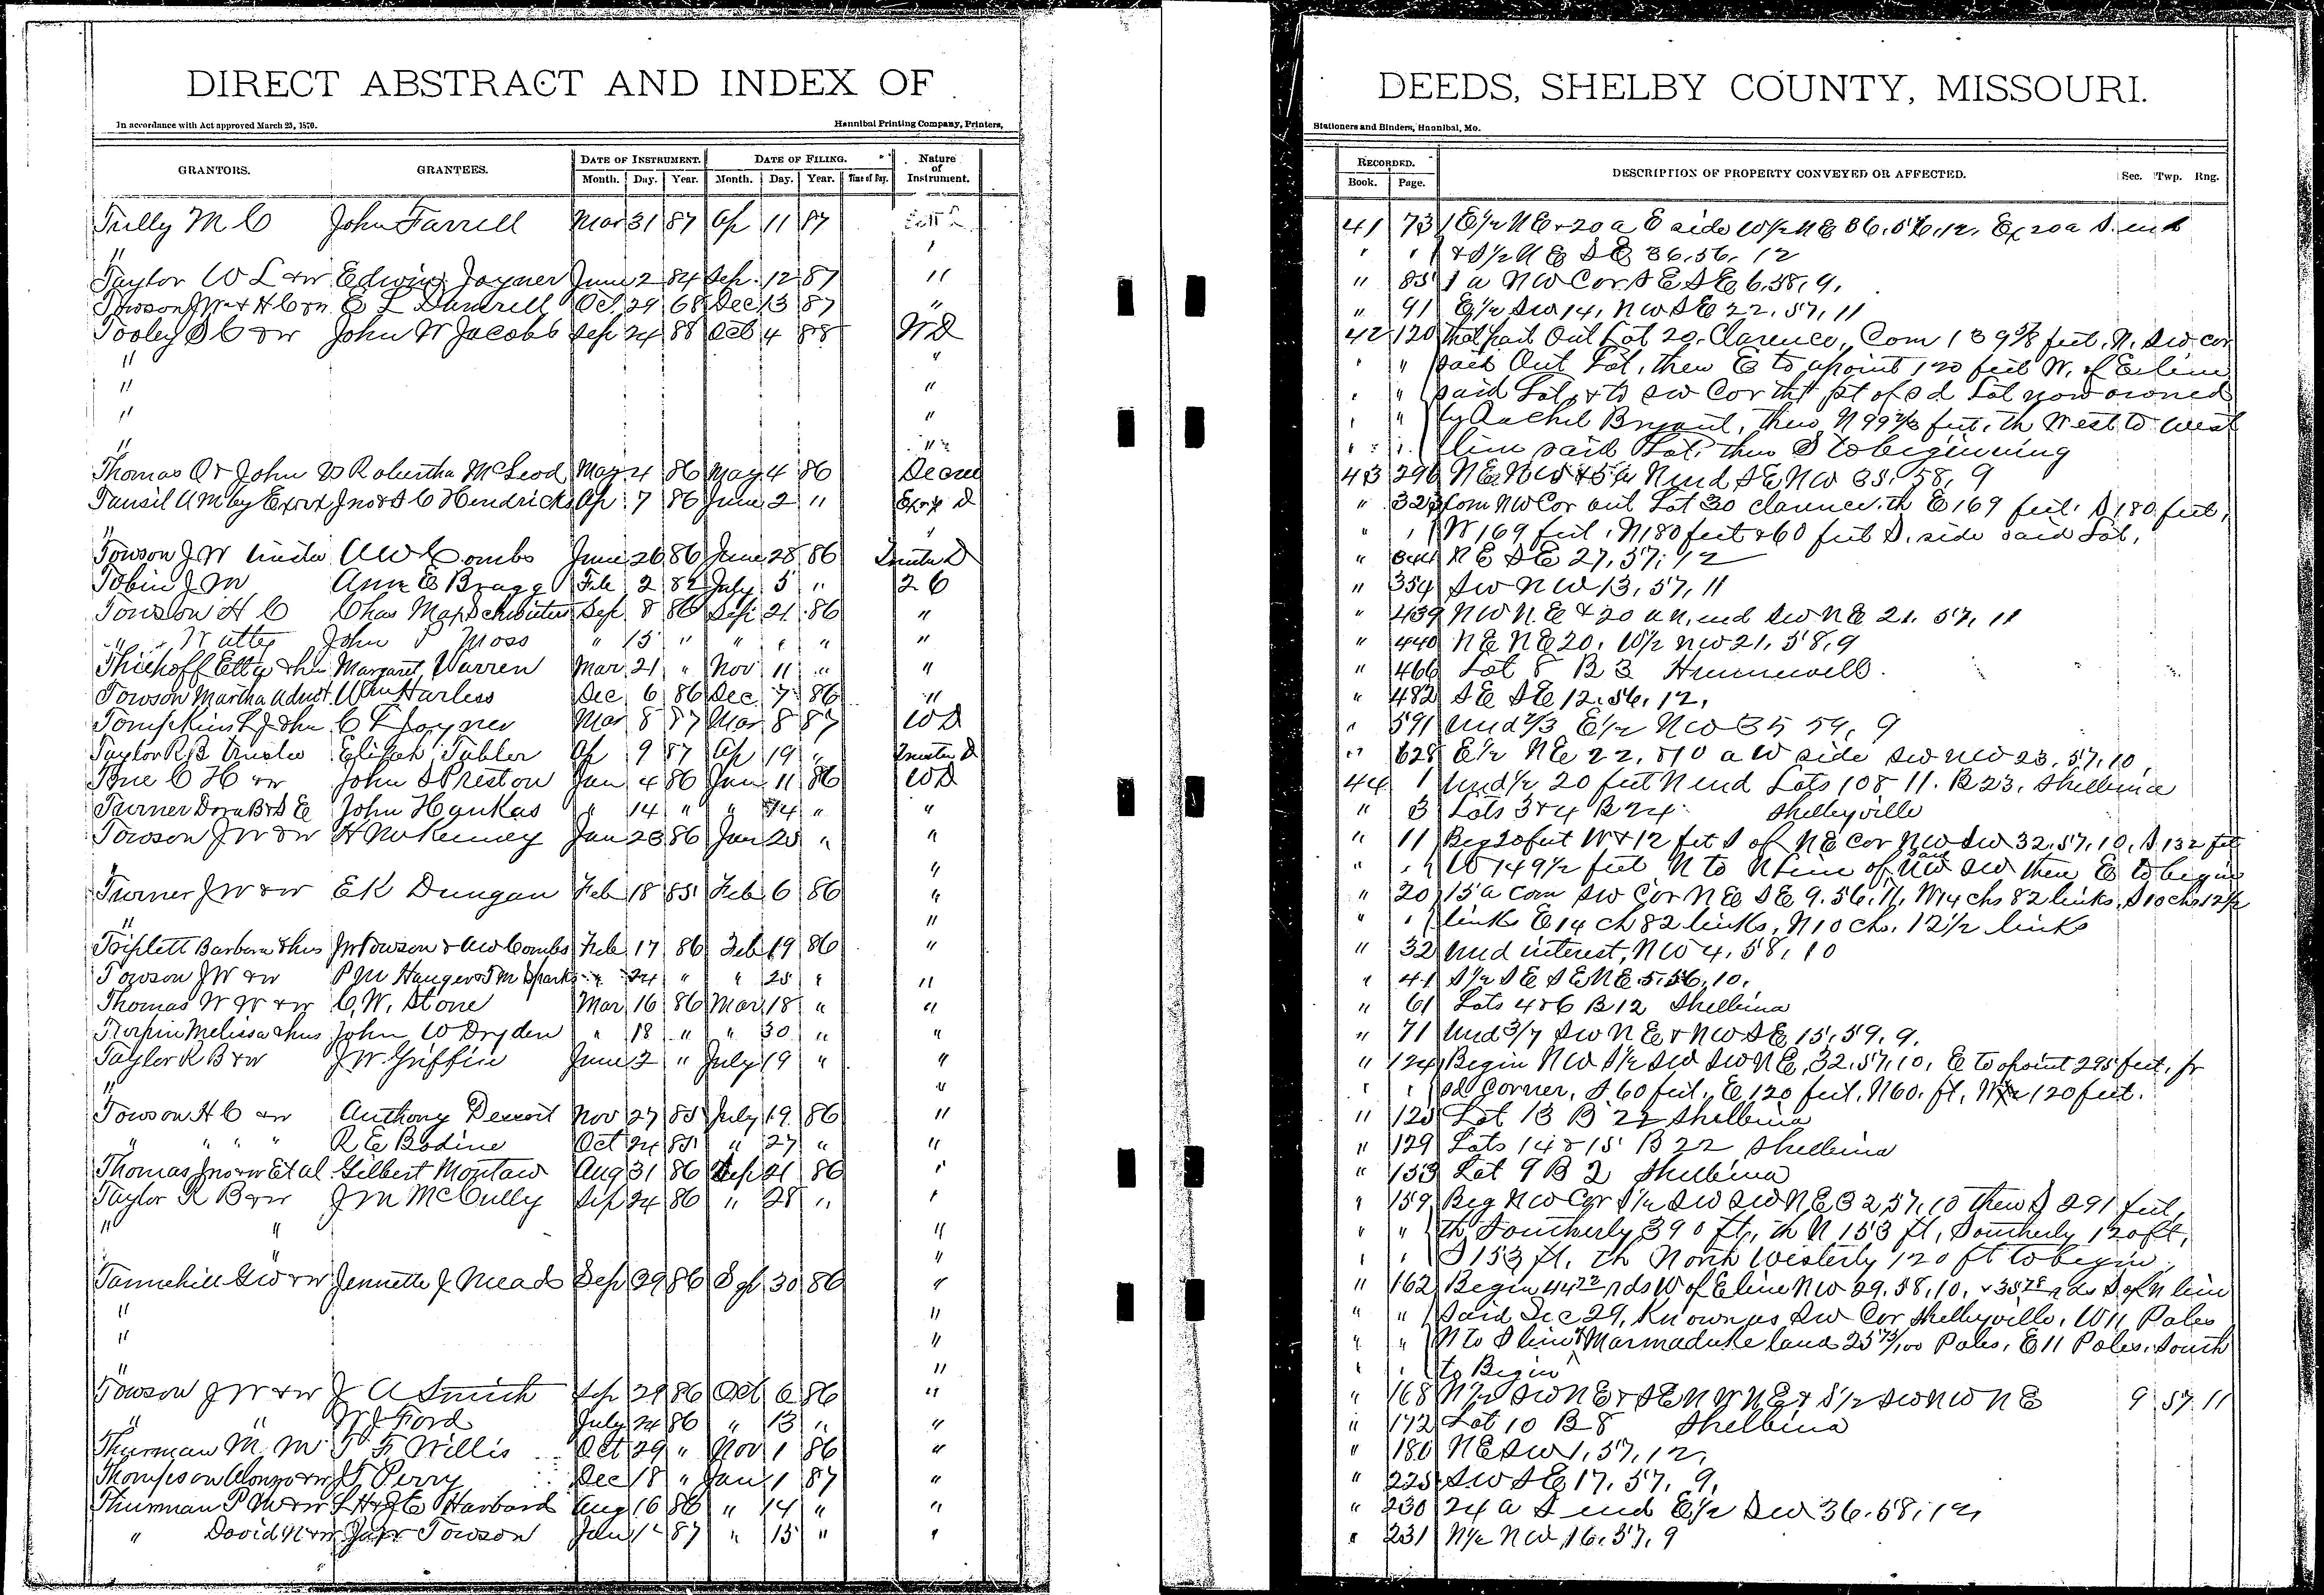 DIRECT ABSTRACT AND INDEX OF
In accordance with Act approved March 23, 1870. Hannibal Printing Company, Printers,
GRANTORS. GRANTEES. DATE OF INSTRUMENT. DATE OF FILING. Nature of Instrument.
Month. Day. Year. Month. Day. Year. Time of Day.
Tully M C John Farrell Mar 31 87 Ap 11 87
"
Taylor W L & w Edwin Joyner June 2 84 Sep. 12 87 "
Towson J W & H C & w E L Oct. 29 68 Dec 13 87 "
Tooley S C & w John W Jacobs Sep 24 88 Oct 4 88 WD
" "
" "
" "
" "
Thomas O & John D Robertha McLeod May 4 86 May 4 86 Decree
Tansil A M by Exrx Jno & S C Hendricks Ap. 7 86 June 2 " Exrx D
Towson J W A W Combs June 26 86 June 28 86 Trustee D
Tobin J M Ann E Bragg Feb 2 82 July 5 " 2 C
Towson H C Chas Sep 8 86 Sep. 21 86 "
" John S Moss " 15 " " " " "
Thiehoff Etta & hus Margaret Warren Mar 21 " Nov 11 " "
Towson Martha Admst. Wm Harless Dec 6 86 Dec 7 86 "
Tompkins L J & hus C F Joyner Mar 8 87 Mar 8 87 WD
Taylor R B Trustee Elijah Tabler Ap 9 87 Ap 19 " Trustee D
C H & w John S Preston Jan 4 86 Jan 11 86 WD
Turner Dora B & S E John Hankas " 14 " " 14 " "
Towson J W & w H McKenney Jan 23 86 Jan 25 " "
"
Turner J W & w E K Dungan Feb 18 85 Feb 6 86 "
" "
Triplett Barbara & hus J W Towson & A W Combs Feb 17 86 Feb 19 86 "
Towson J W & w P M Hanger & T M Sparks " 24 " " 25 " "
Thomas W W & w C. W. Stone Mar 16 86 Mar 18 " "
Turpin Melissa & hus John W Dryden " 18 " " 30 " "
Taylor R B & w J W Griffin June 2 " July 19 " "
" "
Towson H C & w Anthony Nov 27 85 July 19 86 "
" " " " R E Bodine Oct 24 85 " 27 " "
Thomas Jno & w Et al Gilbert Montaw Aug 31 86 Sep 21 86 "
Taylor R B & w J M McCully Sep 24 86 " 28 " "
" " "
" "
Tannehill G W & w Jennette J Meads Sep 29 86 Sep 30 86 "
" "
" "
" "
Towson J W & w J A Smith Sep 29 86 Oct 6 86 "
" " W J Ford July 24 86 " 13 " "
Thurman M. M. T F Willis Oct 29 " Nov 1 86 "
Thompson Alonzo & w Perry Dec 18 " Jan 1 87 "
Thurman P M & w L H & J E Harbard Aug 16 86 " 14 " "
" David N & w Towson Jan 1 87 " 15 " "
DEEDS, SHELBY COUNTY, MISSOURI.
Stationers and Binders, Hannibal, Mo.
RECORDED. DESCRIPTION OF PROPERTY CONVEYED OR AFFECTED. Sec. Twp. Rng.
Book. Page.
41 73 E 1/2 NE & 20 a E side W 1/2 NE 36. 56. 12. Ex 20 a S. end
" " & S 1/2 NE SE 36. 56. 12
" 85 1 a NW Cor SE SE 6. 58, 9.
" 91 E 1/2 SW 14, NW SE 22. 57, 11
42 120 that part Out Lot 20. Clarence, Com 139 5/8 feet. N. SW cor
" " said Out Lot, then E to a point 120 feet W. of E line
" " said Lot, & to SW Cor tht pt of sd Lot now owned
" " by Rachel Bryant, then N 99 2/3 feet, th West to West
" " line said Lot, then S to beginning
43 296 NE NW & 5 a N end SE NW 35. 58, 9
" 323 Com NW Cor out Lot 30 Clarence, th E 169 feet. S 180 feet,
" " W 169 feet, N 180 feet & 60 feet S. side said Lot,
" 344 NE SE 27, 57, 12
" 354 SW NW 13, 57, 11
" 439 NW N. E & 20 a N. end SW NE 21. 57, 11
" 440 NE NE 20, W 1/2 NW 21. 58, 9
" 466 Lot 8 B 3 Hunnewell.
" 482 SE SE 12. 56, 12,
" 591 Und 2/3 E 1/2 NW 35 59, 9
" 628 E 1/2 NE 22, & 10 a W side SW NW 23. 57, 10,
44 1 Und 1/2 20 feet N end Lots 10 & 11. B 23, Shelbina
" 3 Lots 3 & 4 B 24 Shelbyville
" 11 Beg 20 feet W & 12 feet S of NE Cor NW SW 32. 57, 10, S 132 feet
" " W 149 1/2 feet N to N line of said NW SW then E to begin
" 20 15 a com SW Cor NE SE 9. 56, 11, W 14 chs 82 links, S 10 chs 12 1/2
" " links E 14 ch 82 links, N 10 chs. 12 1/2 links
" 32 Und interest, NW 4, 58, 10
" 41 S 1/2 SE SE NE 5. 56, 10,
" 61 Lots 4 & 6 B 12 Shelbina
" 71 Und 3/7 SW NE & NW SE 15, 59, 9.
" 124 Begin NW S 1/2 SW SW NE, 32. 57, 10, E to a point 295 feet, fr
" " sd corner, S 60 feet, E 120 feet, N 60. ft, W 120 feet.
" 125 Lot 13 B 22 Shelbina
" 129 Lots 14 & 15 B 22 Shelbina
" 153 Lot 9 B 2 Shelbina
" 159 Beg NW Cor S 1/2 SW SW NE 32 57, 10 then S 291 feet,
" " th Southerly 390 ft, th N 153 ft, Southerly 120 ft,
" " S 153 ft. th North Westerly 120 ft to begin,
" 162 Begin 44 22 rds W of E line NW 29. 58, 10, & 35 78 rds S of N line
" " Said Sec 29, Known as SW Cor Shelbyville, W 11 Poles
" " N to S line of Marmaduke land 25 73/100 Poles, E 11 Poles, South
" " to Begin
" 168 N 1/2 SW NE & SE NW NE & S 1/2 SW NW NE 9 57. 11
" 172 Lot 10 B 8 Shelbina
" 180 NE SW 1, 57, 12,
" 225 SW SE 17, 57, 9,
" 230 24 a S end E 1/2 SW 36. 58, 12
" 231 N 1/2 NW 16. 57, 9